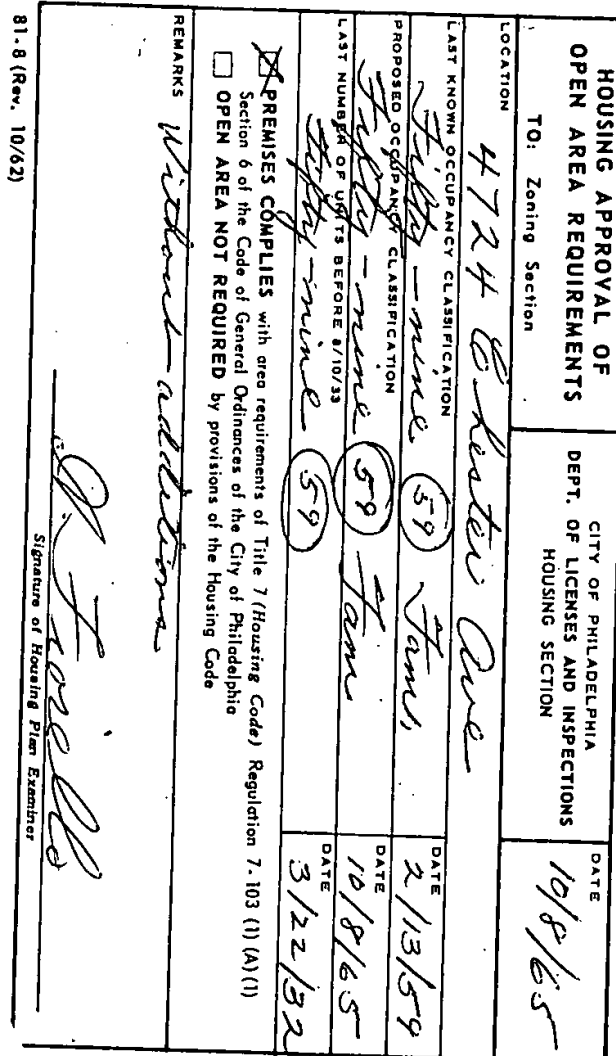 HOUSING APPROVAL OF
OPEN AREA REQUIREMENTS
CITY OF PHILADELPHIA
DEPT. OF LICENSES AND INSPECTIONS
HOUSING SECTION
DATE
10/8/65
TO: Zoning Section
LOCATION
4724 Chester Ave
LAST KNOWN OCCUPANCY CLASSIFICATION
Fifty-nine (59) Fam.
DATE
2/13/59
PROPOSED OCCUPANCY CLASSIFICATION
Fifty-nine (59) Fam
DATE
10/8/65
LAST NUMBER OF UNITS BEFORE 8/10/33
Fifty-nine (59)
DATE
3/22/32
PREMISES COMPLIES with area requirements of Title 7 (Housing Code) Regulation 7-103 (1) (A) (1)
Section 6 of the Code of General Ordinances of the City of Philadelphia
OPEN AREA NOT REQUIRED by provisions of the Housing Code
REMARKS Without additions
Signature of Housing Plan Examiner
81-8 (Rev. 10/62)